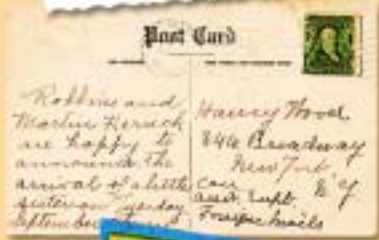 Post Card
Robbins and
Martin Herrick
are happy to
announce the
arrival of a little
sister on
September
Harvey Wood
346 Broadway
New York
care
asst supt.
Foreign Mails